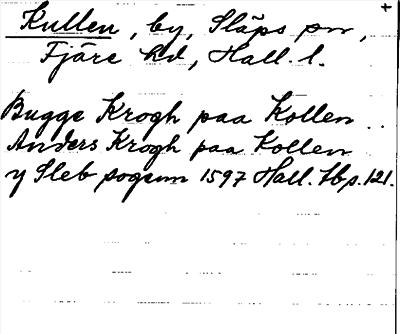 Kullen, by, Släps sn,
Fjäre hd, Hall. l.
Bugge Krogh paa Kollen ..
Anders Krogh paa Kollen
y Sleb sogenn 1597 Hall. tbp. 121.